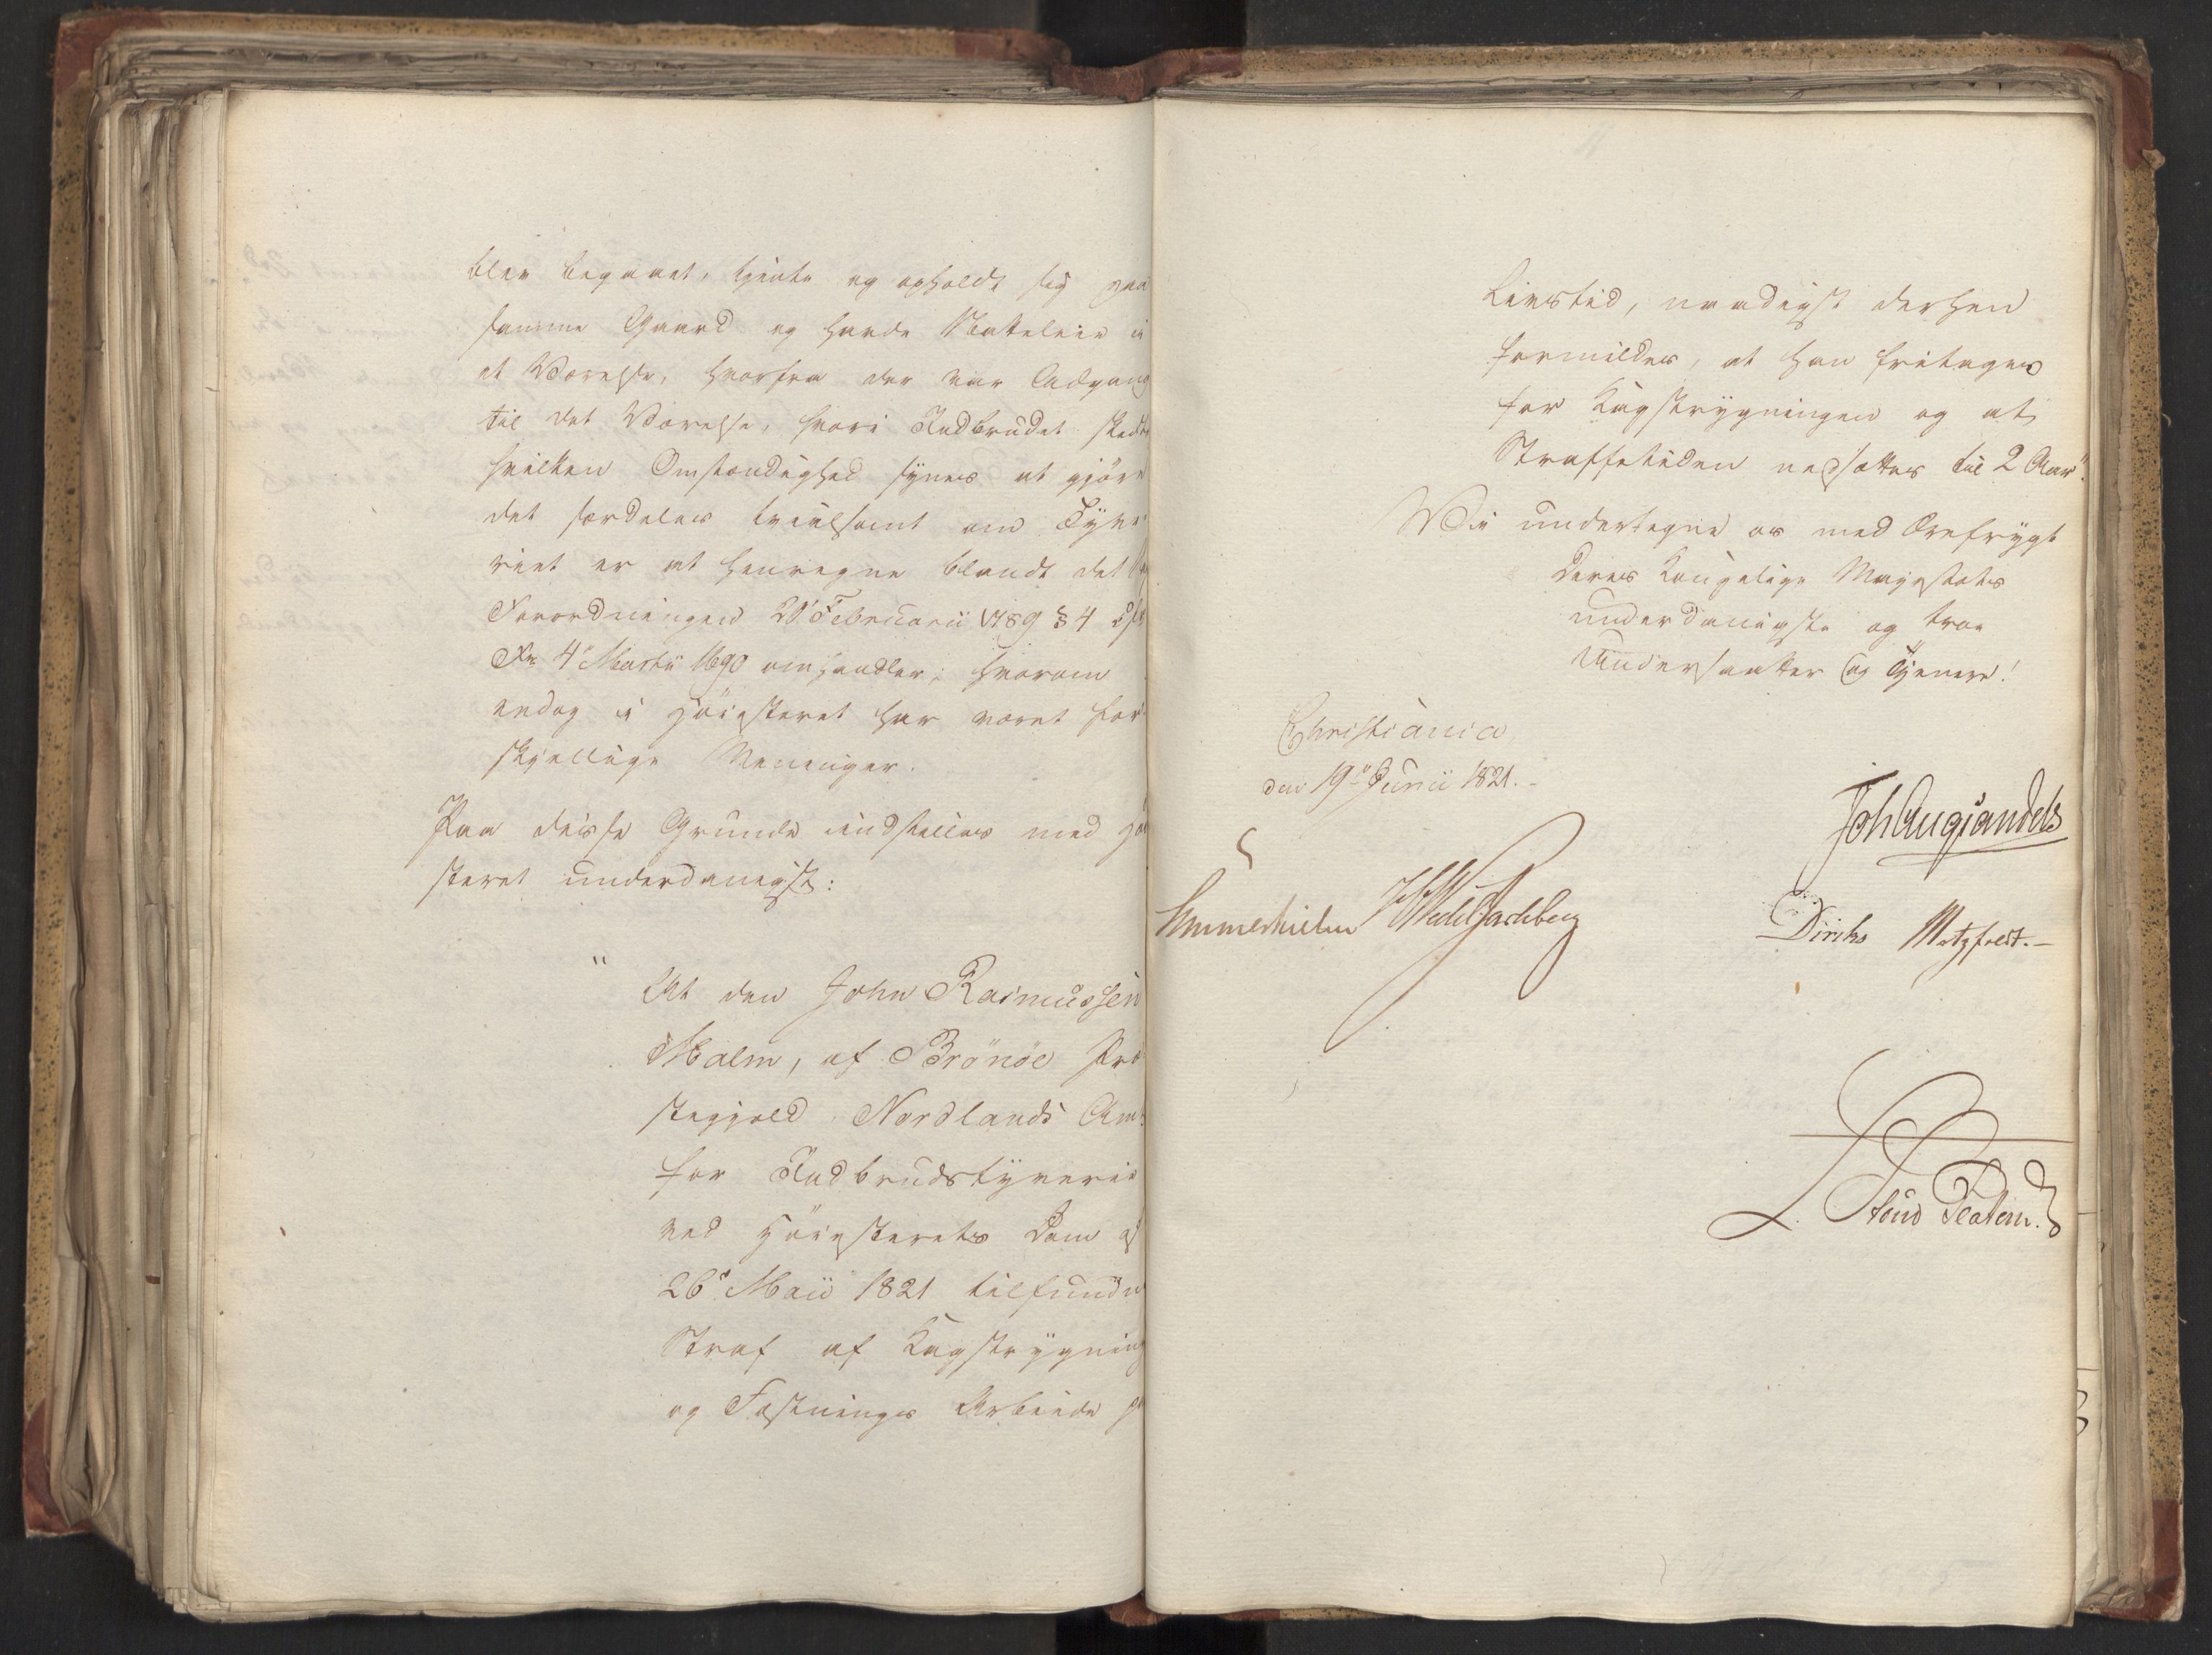 blev begaaet, tjente og opholdt sig paa
samme Gaard og havde Natteleie i
et Værelse, hvorfra der var Adgang
til det Værelse, hvori Indbrudet skedte
hvilken Omstændighed synes at gjøre
det særdeles tvivlsomt om Tyve-
riet er at henregne blandt det
Forordningen 20 Februarii 1789 § 4
Fr 4 Martii 1690 omhandler; hvorom
endog i Höiesteret har været for-
skjellige Meninger.
Paa disse Grunde indstilles med
steret underdanigst:
" At den John Rasmussen
Malm, af Brönöe Præ-
stegjæld Nordlands Amt
for Indbrudstyverie
ved Höiesterets Dom af
26 Maii 1821 tilfundne
Straf af Kagstrygning
og Fæstnings Arbeide
Livstid, naadigst derhen
formildes, at han fritages
for Kagstrygningen og at
Straffetiden nedsættes til 2 Aar".
Vi undertegne os med Ærefrygt
Deres Kongelige Majestæts
underdanigste og troe
Undersaatter og Tjenere!
Christiania
den 19 Junii 1821.
Joh Aug Sandels
Sommerhielm Wedel Jarlsberg
Diriks Motzfeldt.